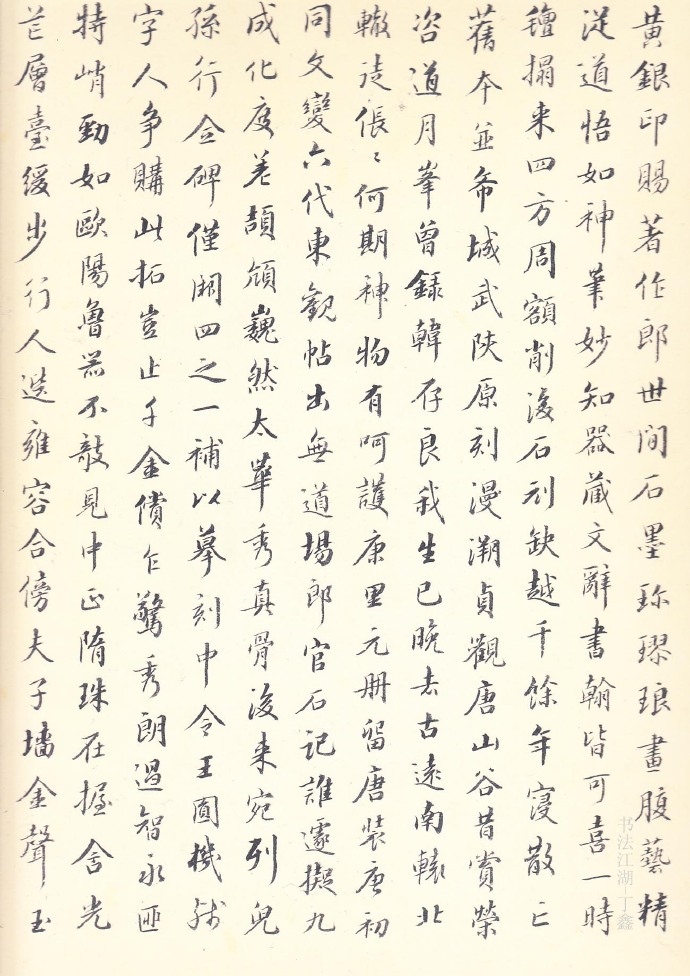 黃銀印賜著作郎世間石墨珎璆琅畫腹藝精
從道悟如神筆妙知器藏文辭書翰皆可喜一時
氊搨来四方周額削後石刓缺越千餘年寖散亡
舊本並希城武陝原刻漫溯貞觀唐山谷昔賞榮
咨道月峯曾錄韓存良我生已晚去古遠南轅北
轍徒倀〻何期神物有呵護康里元冊留唐裝唐初
同文變六代東觀帖出無道場郎官石記誰遽擬九
成化度差頡頏巍然太華秀真骨後来宛列兒
孫行金碑僅開四之一補以摹刻中令王園機残
字人争購此拓豈止千金償乍驚秀朗過智永逈
特峭勁如歐陽魯器不敲見中正隋珠在握含光
芒層臺緩步行人迭雍容合傍夫子墻金聲玉
书法江湖丁鑫